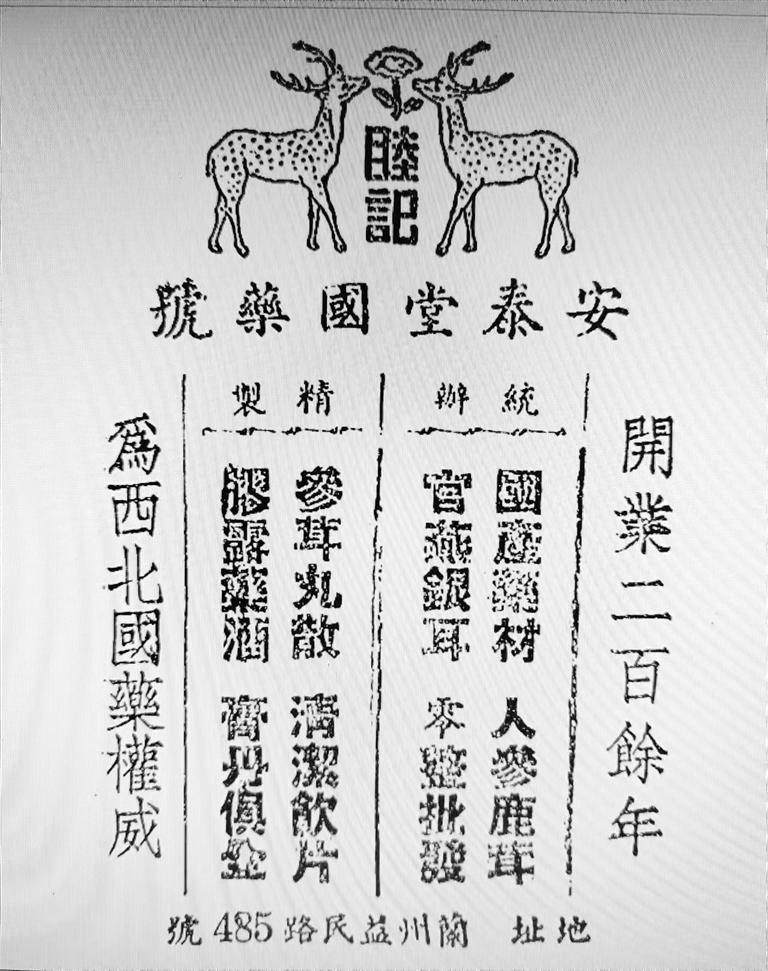 睦記
安泰堂國藥號
開業二百餘年
統辦
國產藥材 人參鹿茸
官燕銀耳 零整批發
精製
參茸丸散 清潔飲片
膠露藥酒 膏丹俱全
爲西北國藥權威
地址 蘭州益民路485號